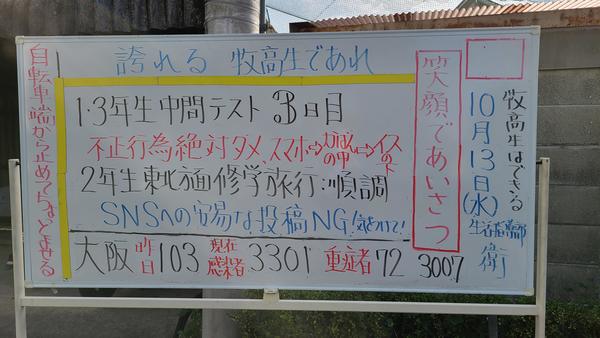 誇れる 牧高生であれ
牧高生はできる
10月13日(水)
笑顔であいさつ
1.3年生中間テスト 3日目
不正行為絶対ダメ スマホ⇨カバンの中⇨イスの下
2年生東北方面修学旅行:順調
SNSへの安易な投稿NG!気をつけて!
大阪 昨日 103 現在感染者 3301 重症者 72 3007
自転車端から止めてちゃんとませる